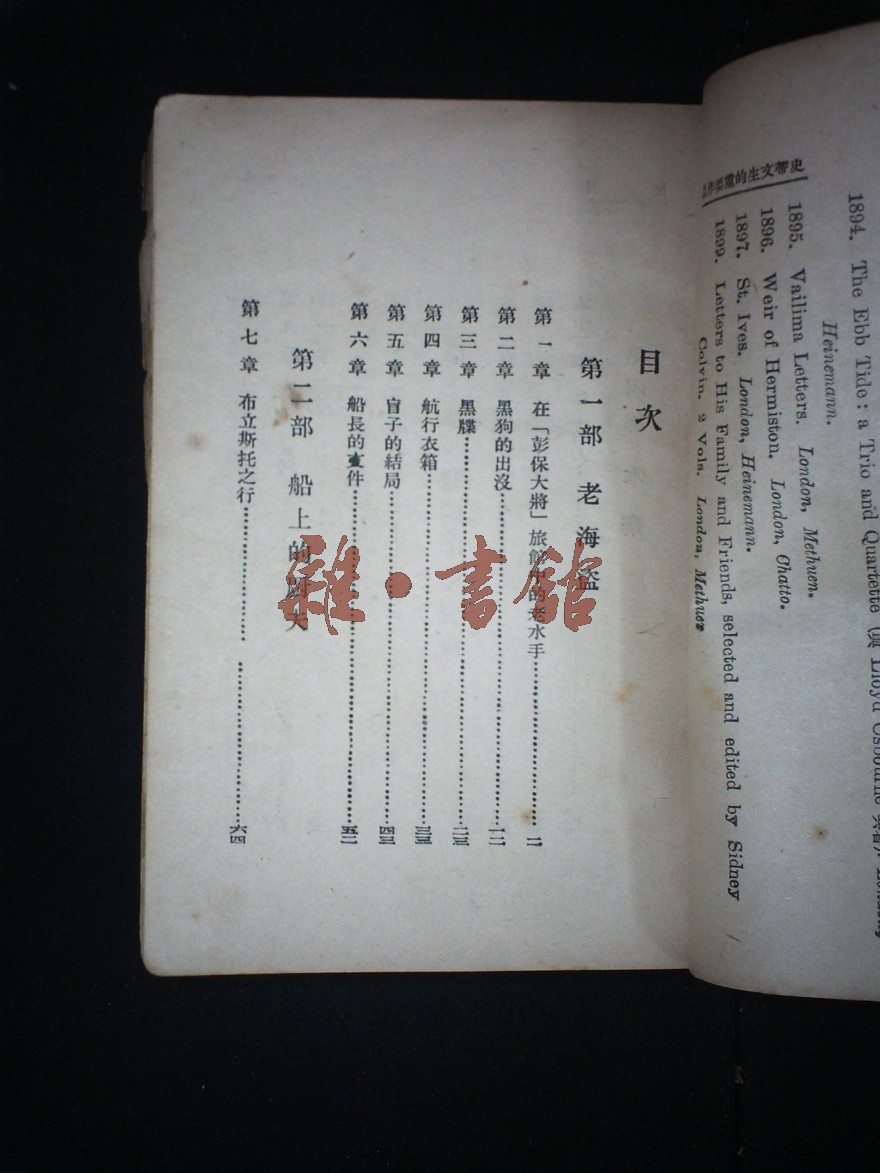 史蒂文生的重要作品
1894. The Ebb Tide: a Trio and Quartette (與 Lloyd Osbourne
Heinemann.
1895. Vailima Letters. London, Methuen.
1896. Weir of Hermiston. London, Chatto.
1897. St. Ives. London, Heinemann.
1899. Letters to His Family and Friends, selected and edited by Sidney
Colvin. 2 Vols. London, Methuen
目次
第一部 老海盜
第一章 在「彭保大將」旅館中的老水手
第二章 黑狗的出沒
第三章 黑牒
第四章 航行衣箱
第五章 盲子的結局
第六章 船長的文件
五二
第二部 船上的厨夫
第七章 布立斯托之行
六四
雜·書館